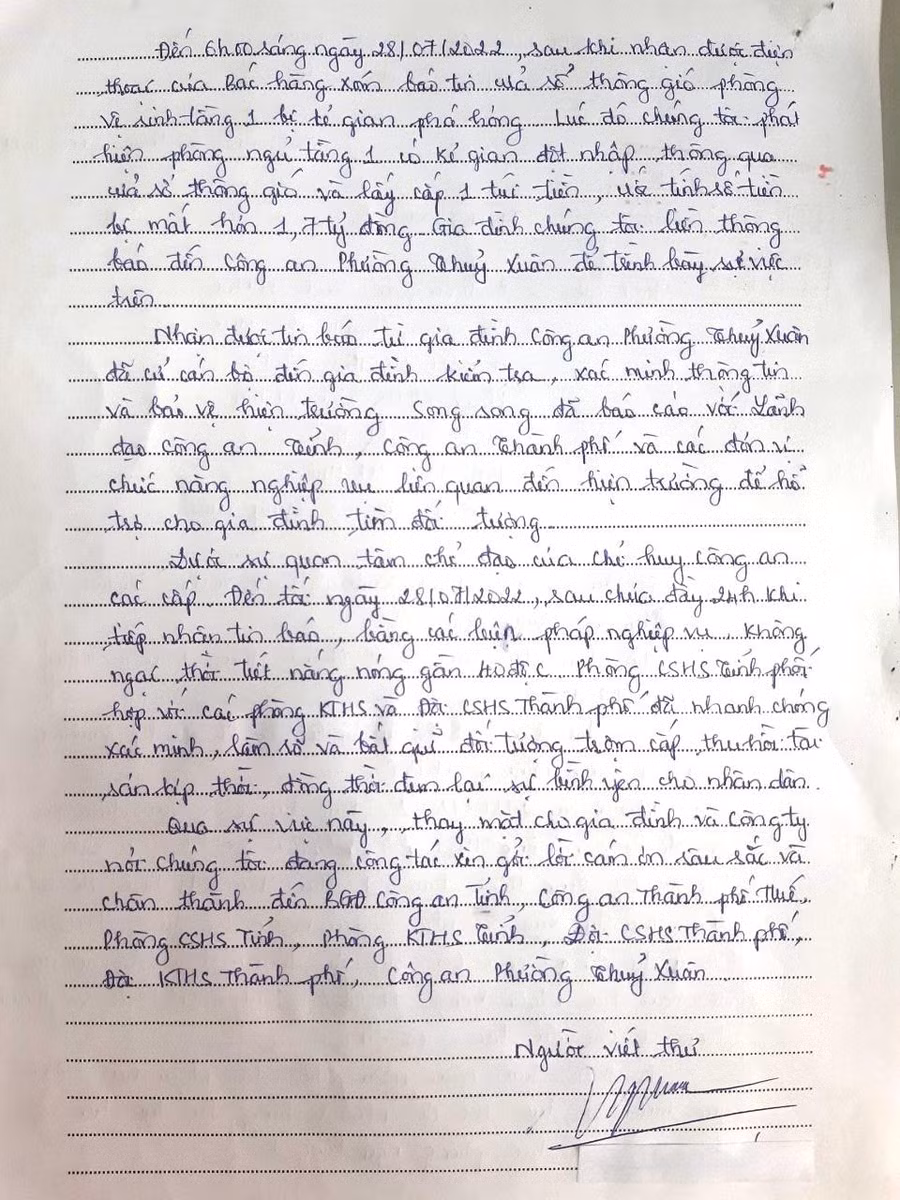 Đến 6h00 sáng ngày 28/07/2022, sau khi nhận được điện
thoại của Bác hàng xóm báo tin cửa sổ thông gió phòng
vệ sinh tầng 1 bị kẻ gian phá hỏng. Lúc đó chúng tôi phát
hiện phòng ngủ tầng 1 có kẻ gian đột nhập thông qua
cửa sổ thông gió và lấy cắp 1 túi tiền, ước tính số tiền
bị mất hơn 1,7 tỷ đồng. Gia đình chúng tôi liền thông
báo đến Công an Phường Thuỷ Xuân để trình bày sự việc
trên.
Nhận được tin báo từ gia đình Công an Phường Thuỷ Xuân
đã cử cán bộ đến gia đình kiểm tra, xác minh thông tin
và bảo vệ hiện trường. Song song đã báo cáo với Lãnh
đạo Công an Tỉnh, Công an Thành phố và các đơn vị
chức năng nghiệp vụ liên quan đến hiện trường để hỗ
trợ cho gia đình tìm đối tượng.
Dưới sự quan tâm chỉ đạo của chỉ huy Công an
các cấp. Đến tối ngày 28/07/2022, sau chưa đầy 24h khi
tiếp nhận tin báo, bằng các biện pháp nghiệp vụ không
ngại thời tiết nắng nóng gần 40 độ C. Phòng CSHS Tỉnh phối
hợp với các phòng KTHS và Đội CSHS Thành phố đã nhanh chóng
xác minh, làm rõ và bắt giữ đối tượng trộm cắp, thu hồi tài
sản kịp thời, đồng thời đem lại sự bình yên cho nhân dân.
Qua sự việc này, thay mặt cho gia đình và Công ty
nơi chúng tôi đang công tác xin gởi lời cám ơn sâu sắc và
chân thành đến BGĐ Công an Tỉnh, Công an Thành phố Huế,
Phòng CSHS Tỉnh, Phòng KTHS Tỉnh, Đội CSHS Thành phố,
Đội KTHS Thành phố, Công an Phường Thuỷ Xuân
Người viết thư